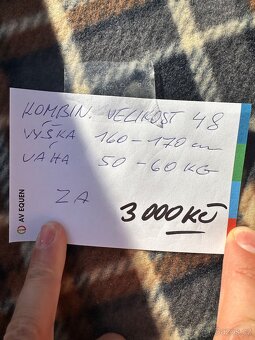 KOMBIN. VELIKOST 48
VÝŠKA 160-170 cm
VÁHA 50-60 KG
ZA 3 000 KČ
AV EQUEN